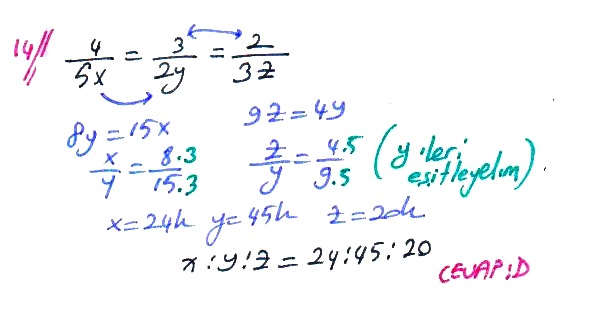 14// 4/5x = 3/2y = 2/3z
8y = 15x 9z = 4y
x/y = 8.3/15.3 z/y = 4.5/9.5 (y'leri eşitleyelim).
x = 24k y = 45k z = 20k
x : y : z = 24 : 45 : 20
CEVAP : D